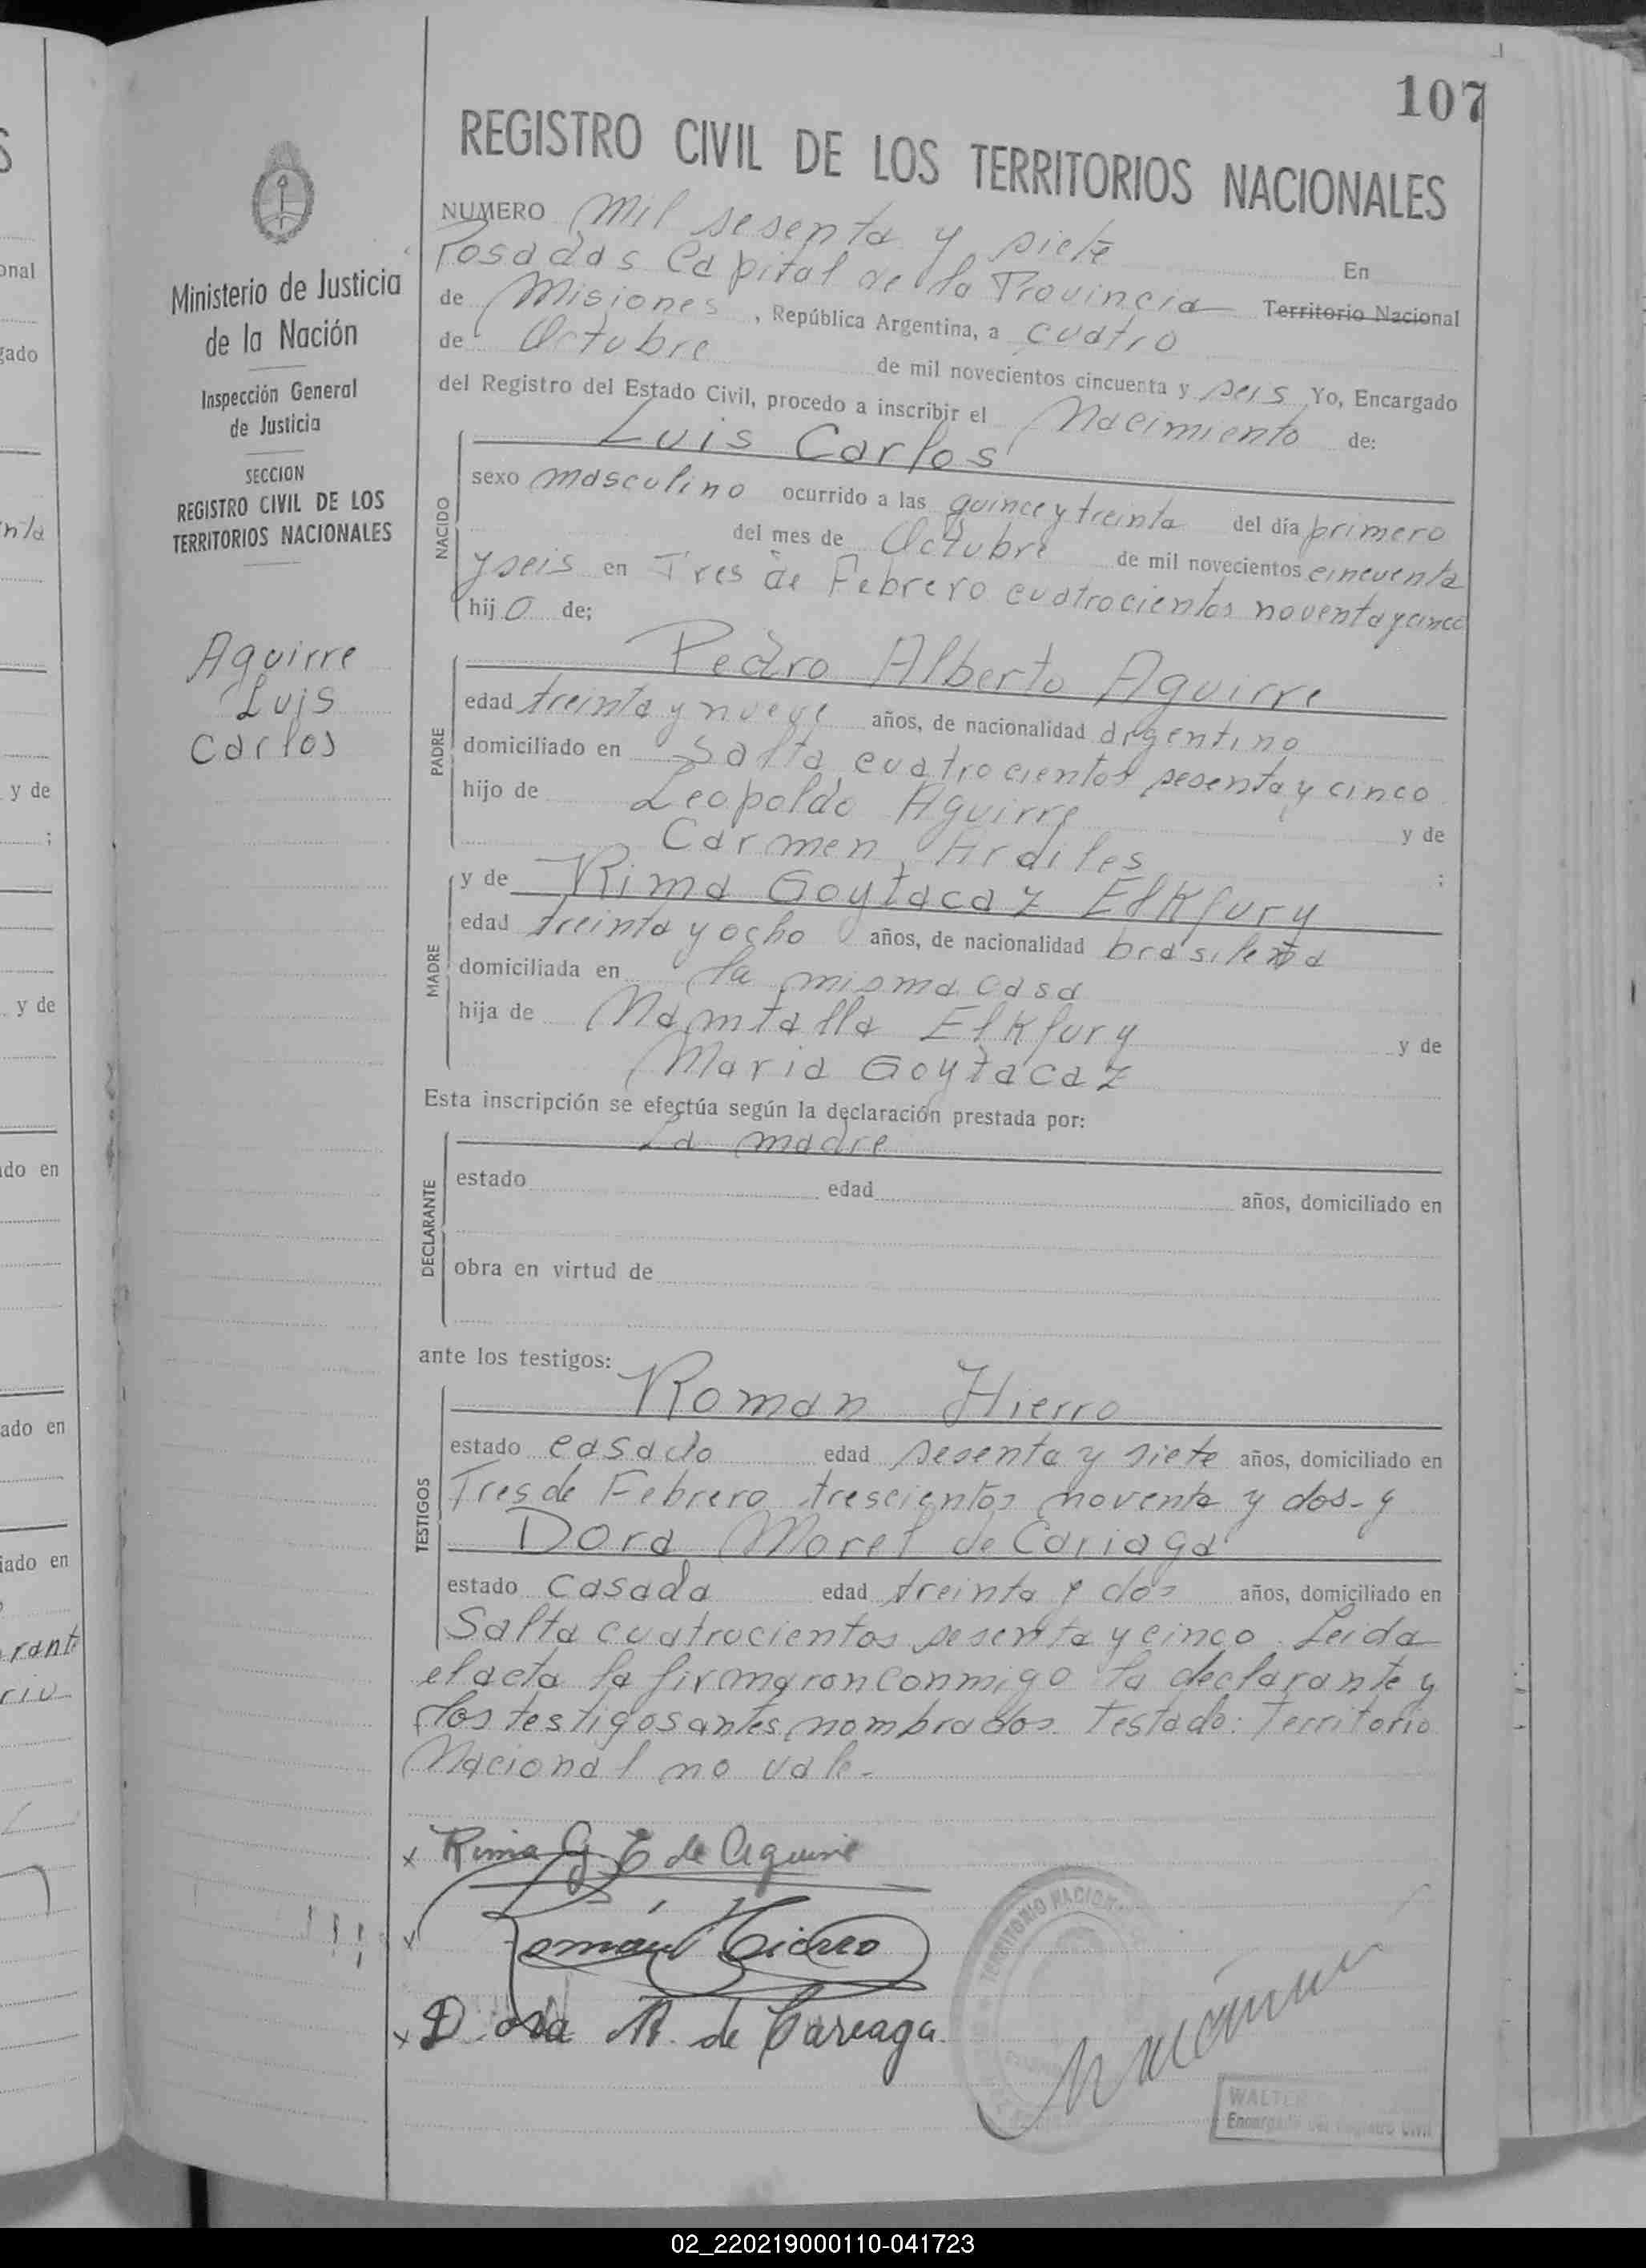 107
REGISTRO CIVIL DE LOS TERRITORIOS NACIONALES
Ministerio de Justicia
de la Nación
Inspección General
de Justicia
SECCION
REGISTRO CIVIL DE LOS
TERRITORIOS NACIONALES
Aguirre
Luis
Carlos
NUMERO Mil sesenta y siete En
Posadas Capital de la Provincia Territorio Nacional
de Misiones, República Argentina, a cuatro
de Octubre de mil novecientos cincuenta y seis Yo, Encargado
del Registro del Estado Civil, procedo a inscribir el Nacimiento de:
NACIDO
Luis Carlos
sexo masculino ocurrido a las quince y treinta del día primero
del mes de Octubre de mil novecientos cincuenta
y seis en Tres de Febrero cuatrocientos noventa y cinco
hijo de;
PADRE
Pedro Alberto Aguirre
edad treinta y nueve años, de nacionalidad argentino
domiciliado en Salta cuatrocientos sesenta y cinco
hijo de Leopoldo Aguirre y de
Carmen Ardiles ;
MADRE
y de Rima Goytacaz El Kfury
edad treinta y ocho años, de nacionalidad brasileña
domiciliada en la misma casa
hija de Namtalla El Kfury y de
Maria Goytacaz
Esta inscripción se efectúa según la declaración prestada por:
DECLARANTE
La madre
estado edad años, domiciliado en
obra en virtud de
ante los testigos:
TESTIGOS
Roman Hierro
estado casado edad sesenta y siete años, domiciliado en
Tres de Febrero trescientos noventa y dos- y
Dora Morel de Cariaga
estado casada edad treinta y dos años, domiciliado en
Salta cuatrocientos sesenta y cinco. Leida
el acta la firmaron conmigo la declarante y
los testigos antes nombrados. Testado: Territorio
Nacional no vale.-
x Rima G E de Aguirre
Román Hierro
x Dora M. de Careaga.
TERRITORIO NACIONAL
WALTER
Encargado del Registro Civil
02_220219000110-041723